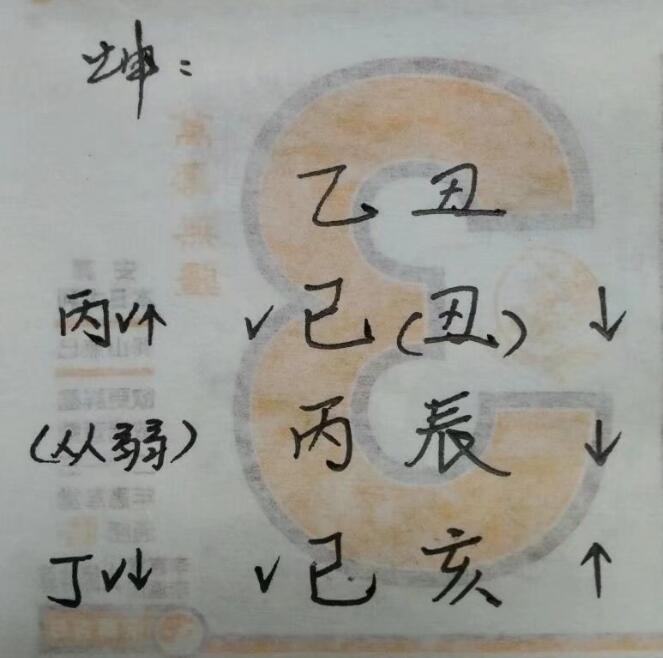 坤：
乙 丑
丙✓↑ ✓己(丑) ↓
(从弱) 丙 辰 ↓
丁✓↓ ✓己 亥 ↑